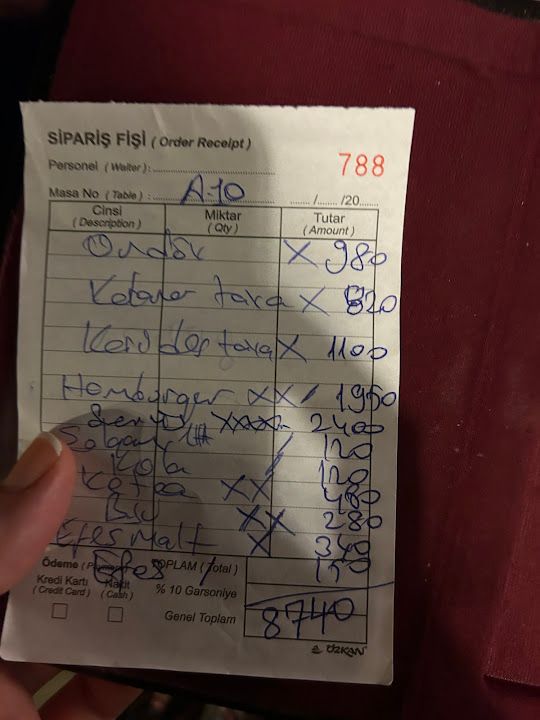 SİPARİŞ FİŞİ ( Order Receipt )
788
Personel ( Waiter ) :
Masa No ( Table ) : A-10 ....../....../20......
Cinsi Miktar Tutar
( Description ) ( Qty ) ( Amount )
X 980
tava X 820
tava X 1100
Hamburger XX/ 1950
2400
Şalgam / 120
Kola 120
XX 480
XX 280
Efes Malt X 340
Efes / 150
Ödeme TOPLAM ( Total )
Kredi Kartı Nakit
( Credit Card ) ( Cash ) % 10 Garsoniye
Genel Toplam 8740
ÖZKAN